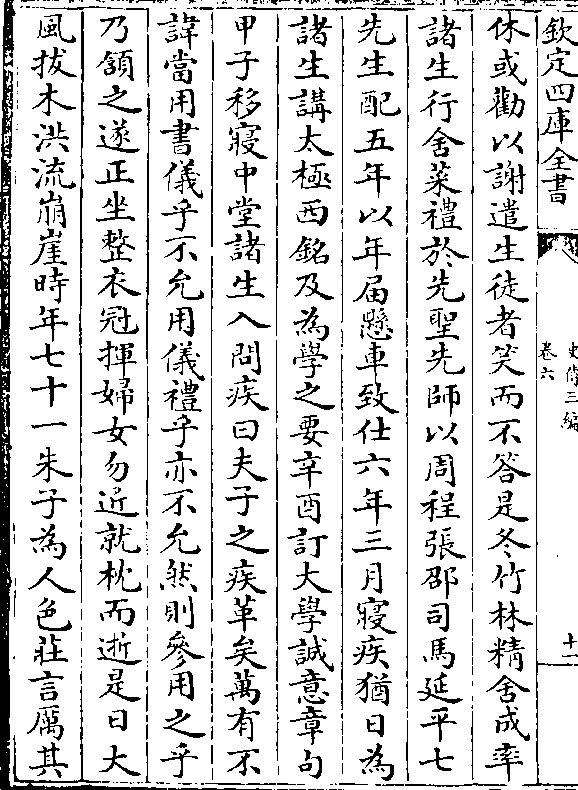 欽定四庫全書
史傳三編
卷六
十一
休或勸以謝遣生徒者笑而不答是冬竹林精舍成率
諸生行舍菜禮於先聖先師以周程張邵司馬延平七
先生配五年以年届懸車致仕六年三月寢疾猶日為
諸生講太極西銘及為學之要辛酉訂大學誠意章句
甲子移寢中堂諸生入問疾曰夫子之疾革矣萬有不
諱當用書儀乎不允用儀禮乎亦不允然則參用之乎
乃頷之遂正坐整衣冠揮婦女勿近就枕而逝是日大
風拔木洪流崩崖時年七十一朱子為人色莊言厲其